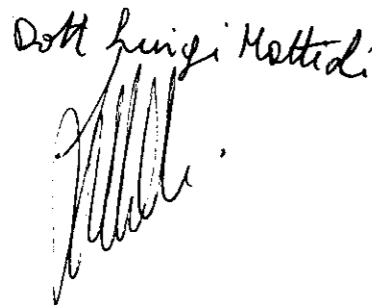 Dott Luigi Mattedi